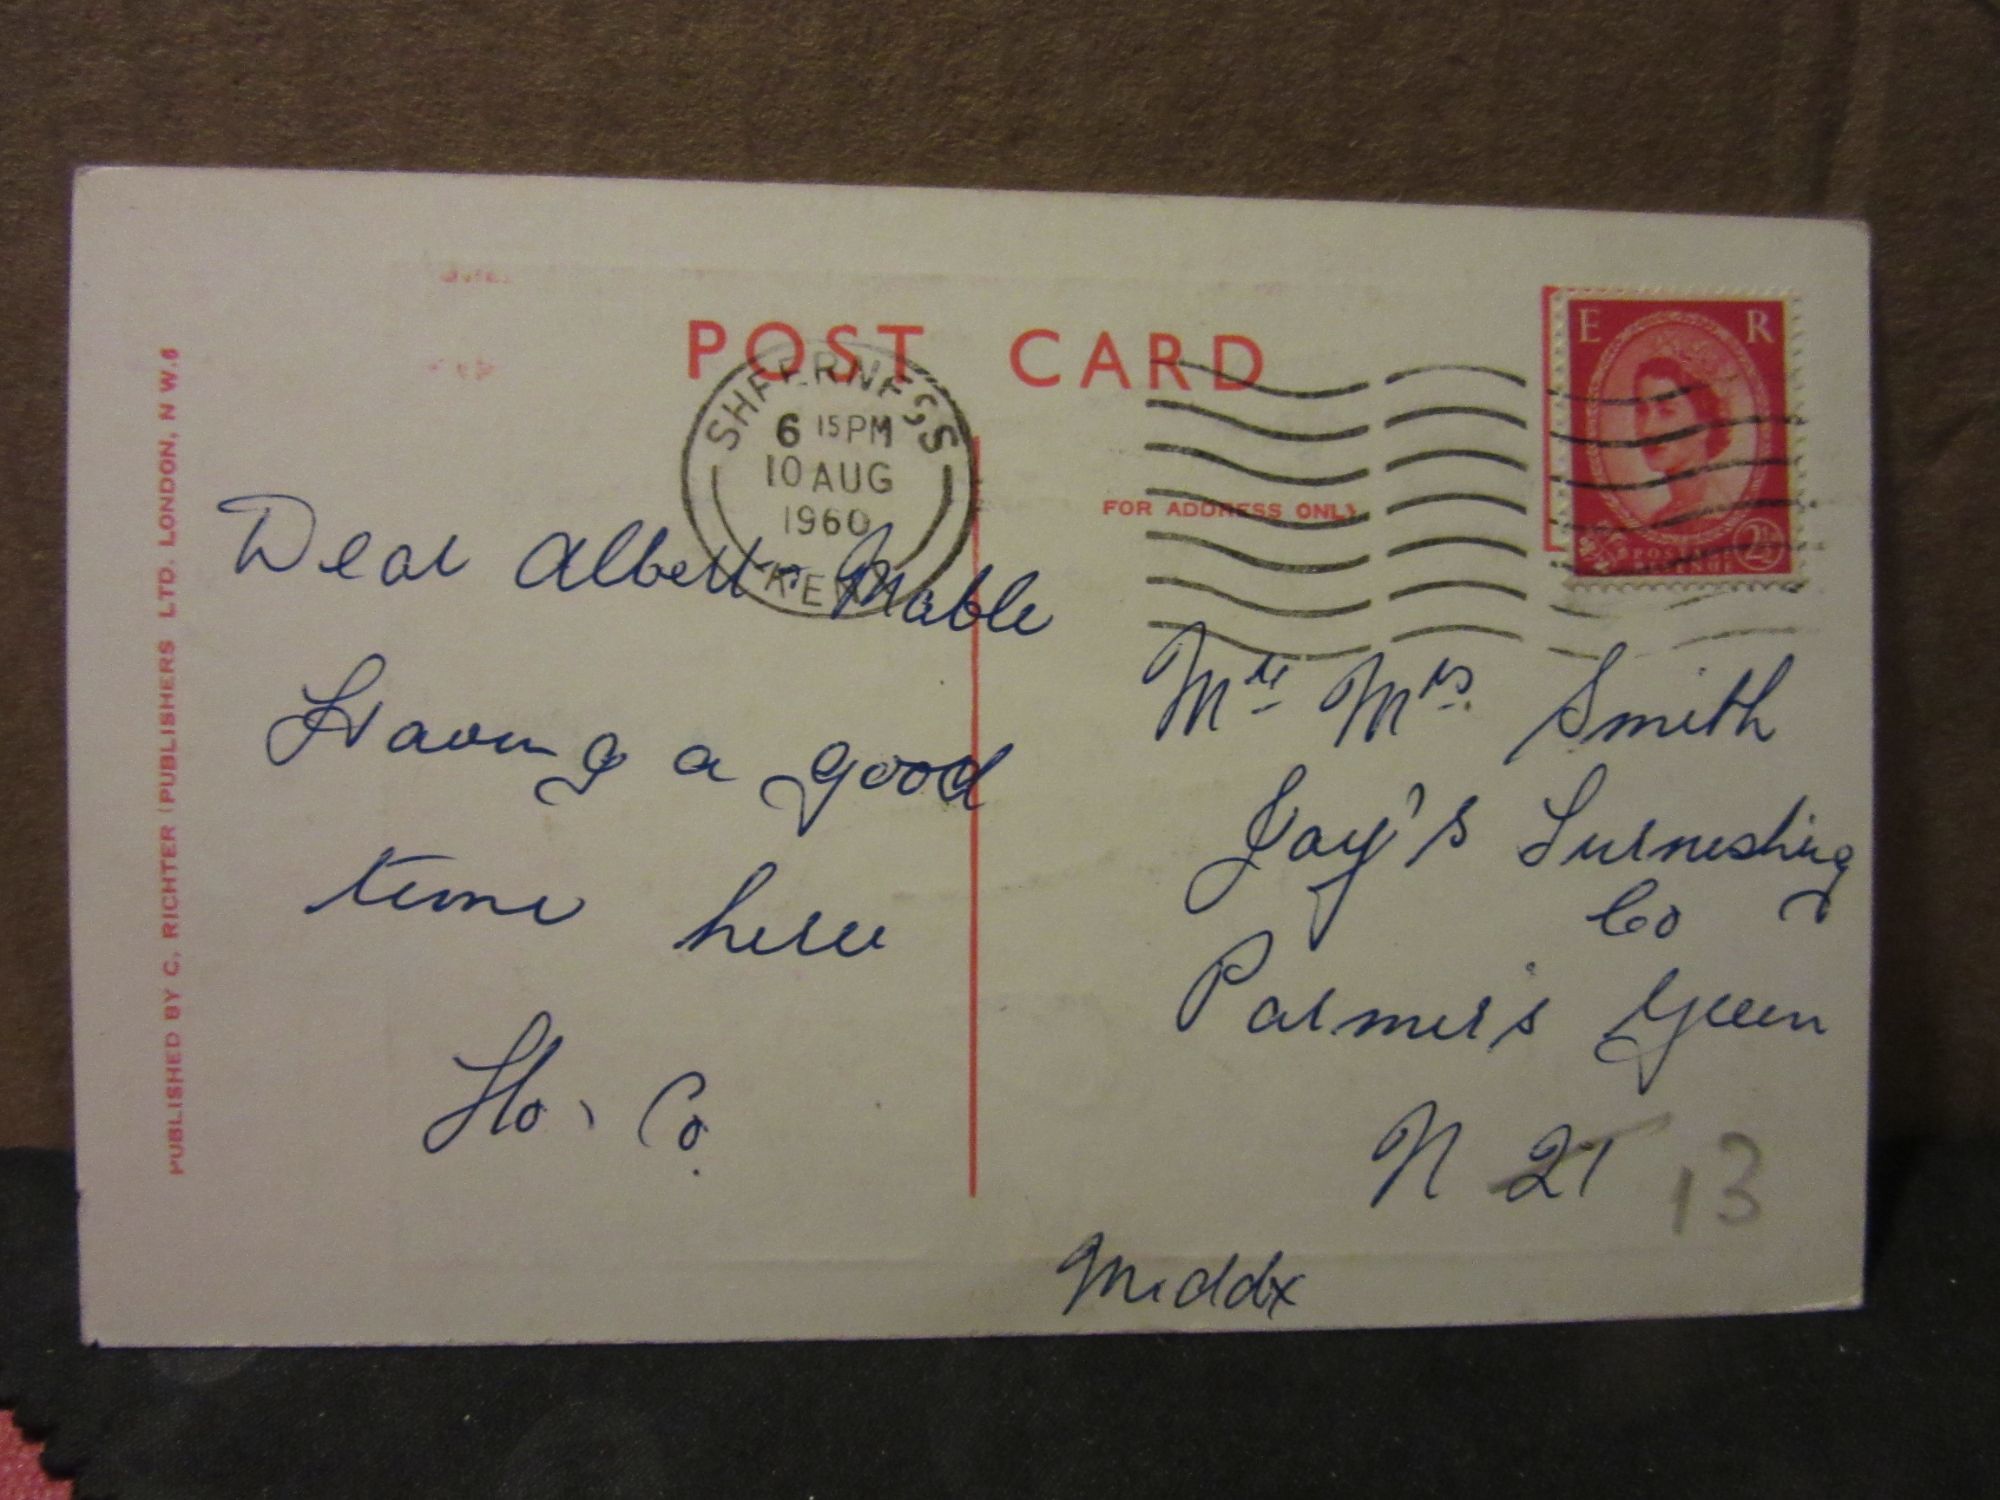 POST CARD
SHEERNESS
6 15 PM
10 AUG
1960
KENT
E R
POSTAGE
REVENUE
2½
FOR ADDRESS ONLY
PUBLISHED BY C. RICHTER (PUBLISHERS) LTD. LONDON, N W.6
Dear Albert + Mable
Having a good
time here
Flo. Co.
Mr Mrs Smith
Jay's Furnishing
Co
Palmer's Green
N 21 13
Middx